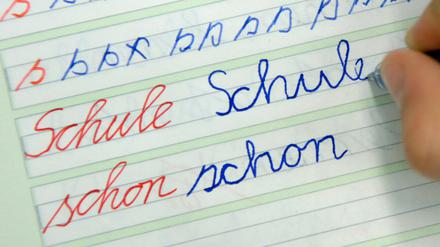 s s s x s s s s s s
Schule Schule
schon schon